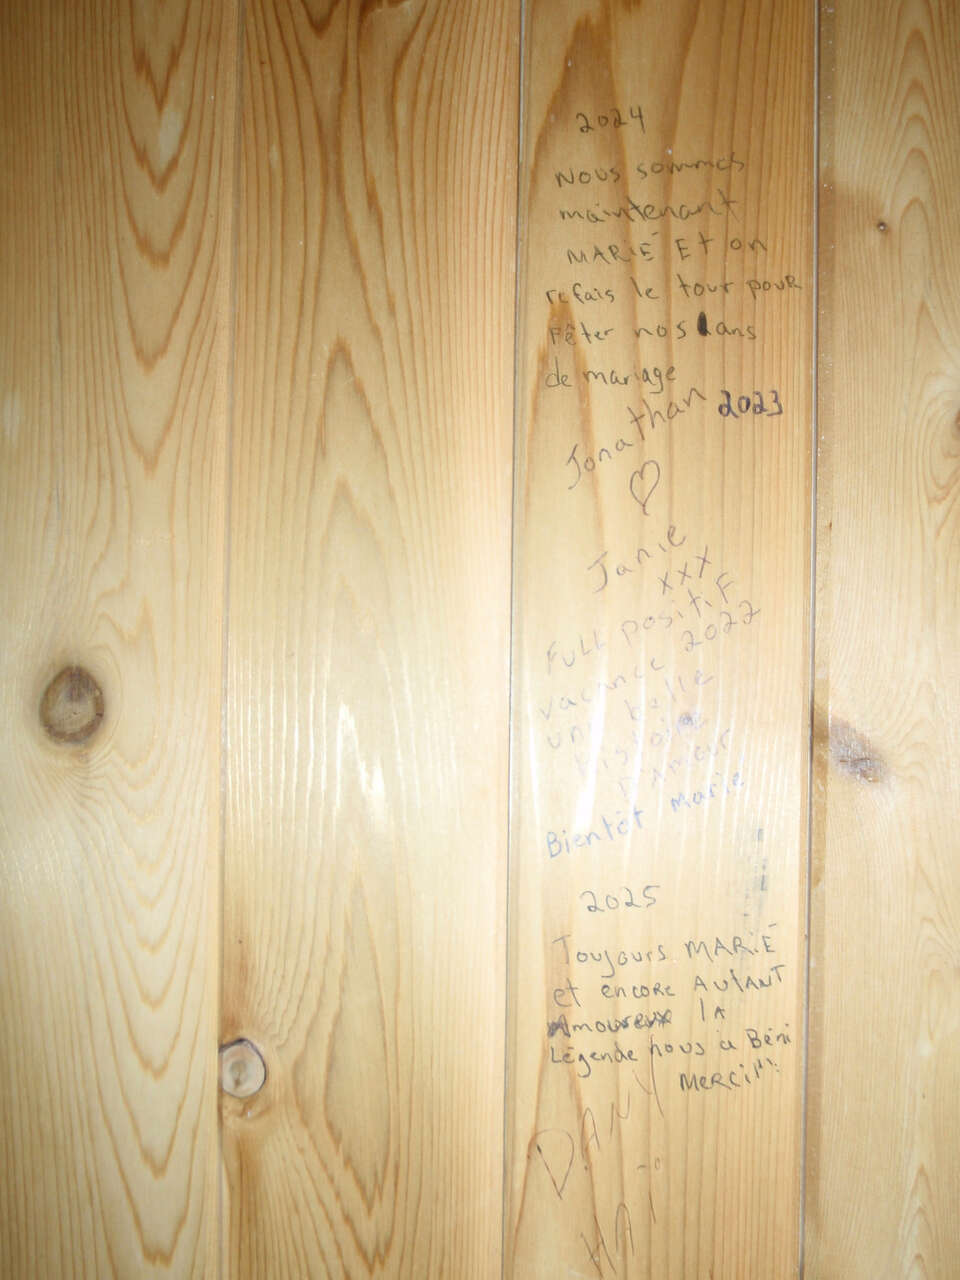 2024
Nous sommes
maintenant
MARIÉ Et on
refais le tour pour
Fêter nos 1 ans
de mariage
Jonathan 2023
Janie
xxx
Full positif
vacance 2022
une belle
histoire
D'Amour
Bientôt marié
2025
Toujours MARIÉ
et encore AUTANT
Amoureux la
Légende nous a Béni
Merci!!!
DANY